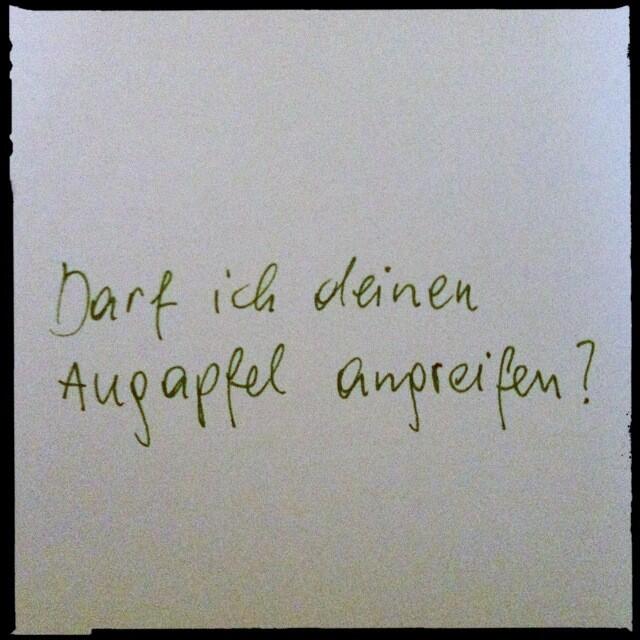 Darf ich deinen
Augapfel angreifen?